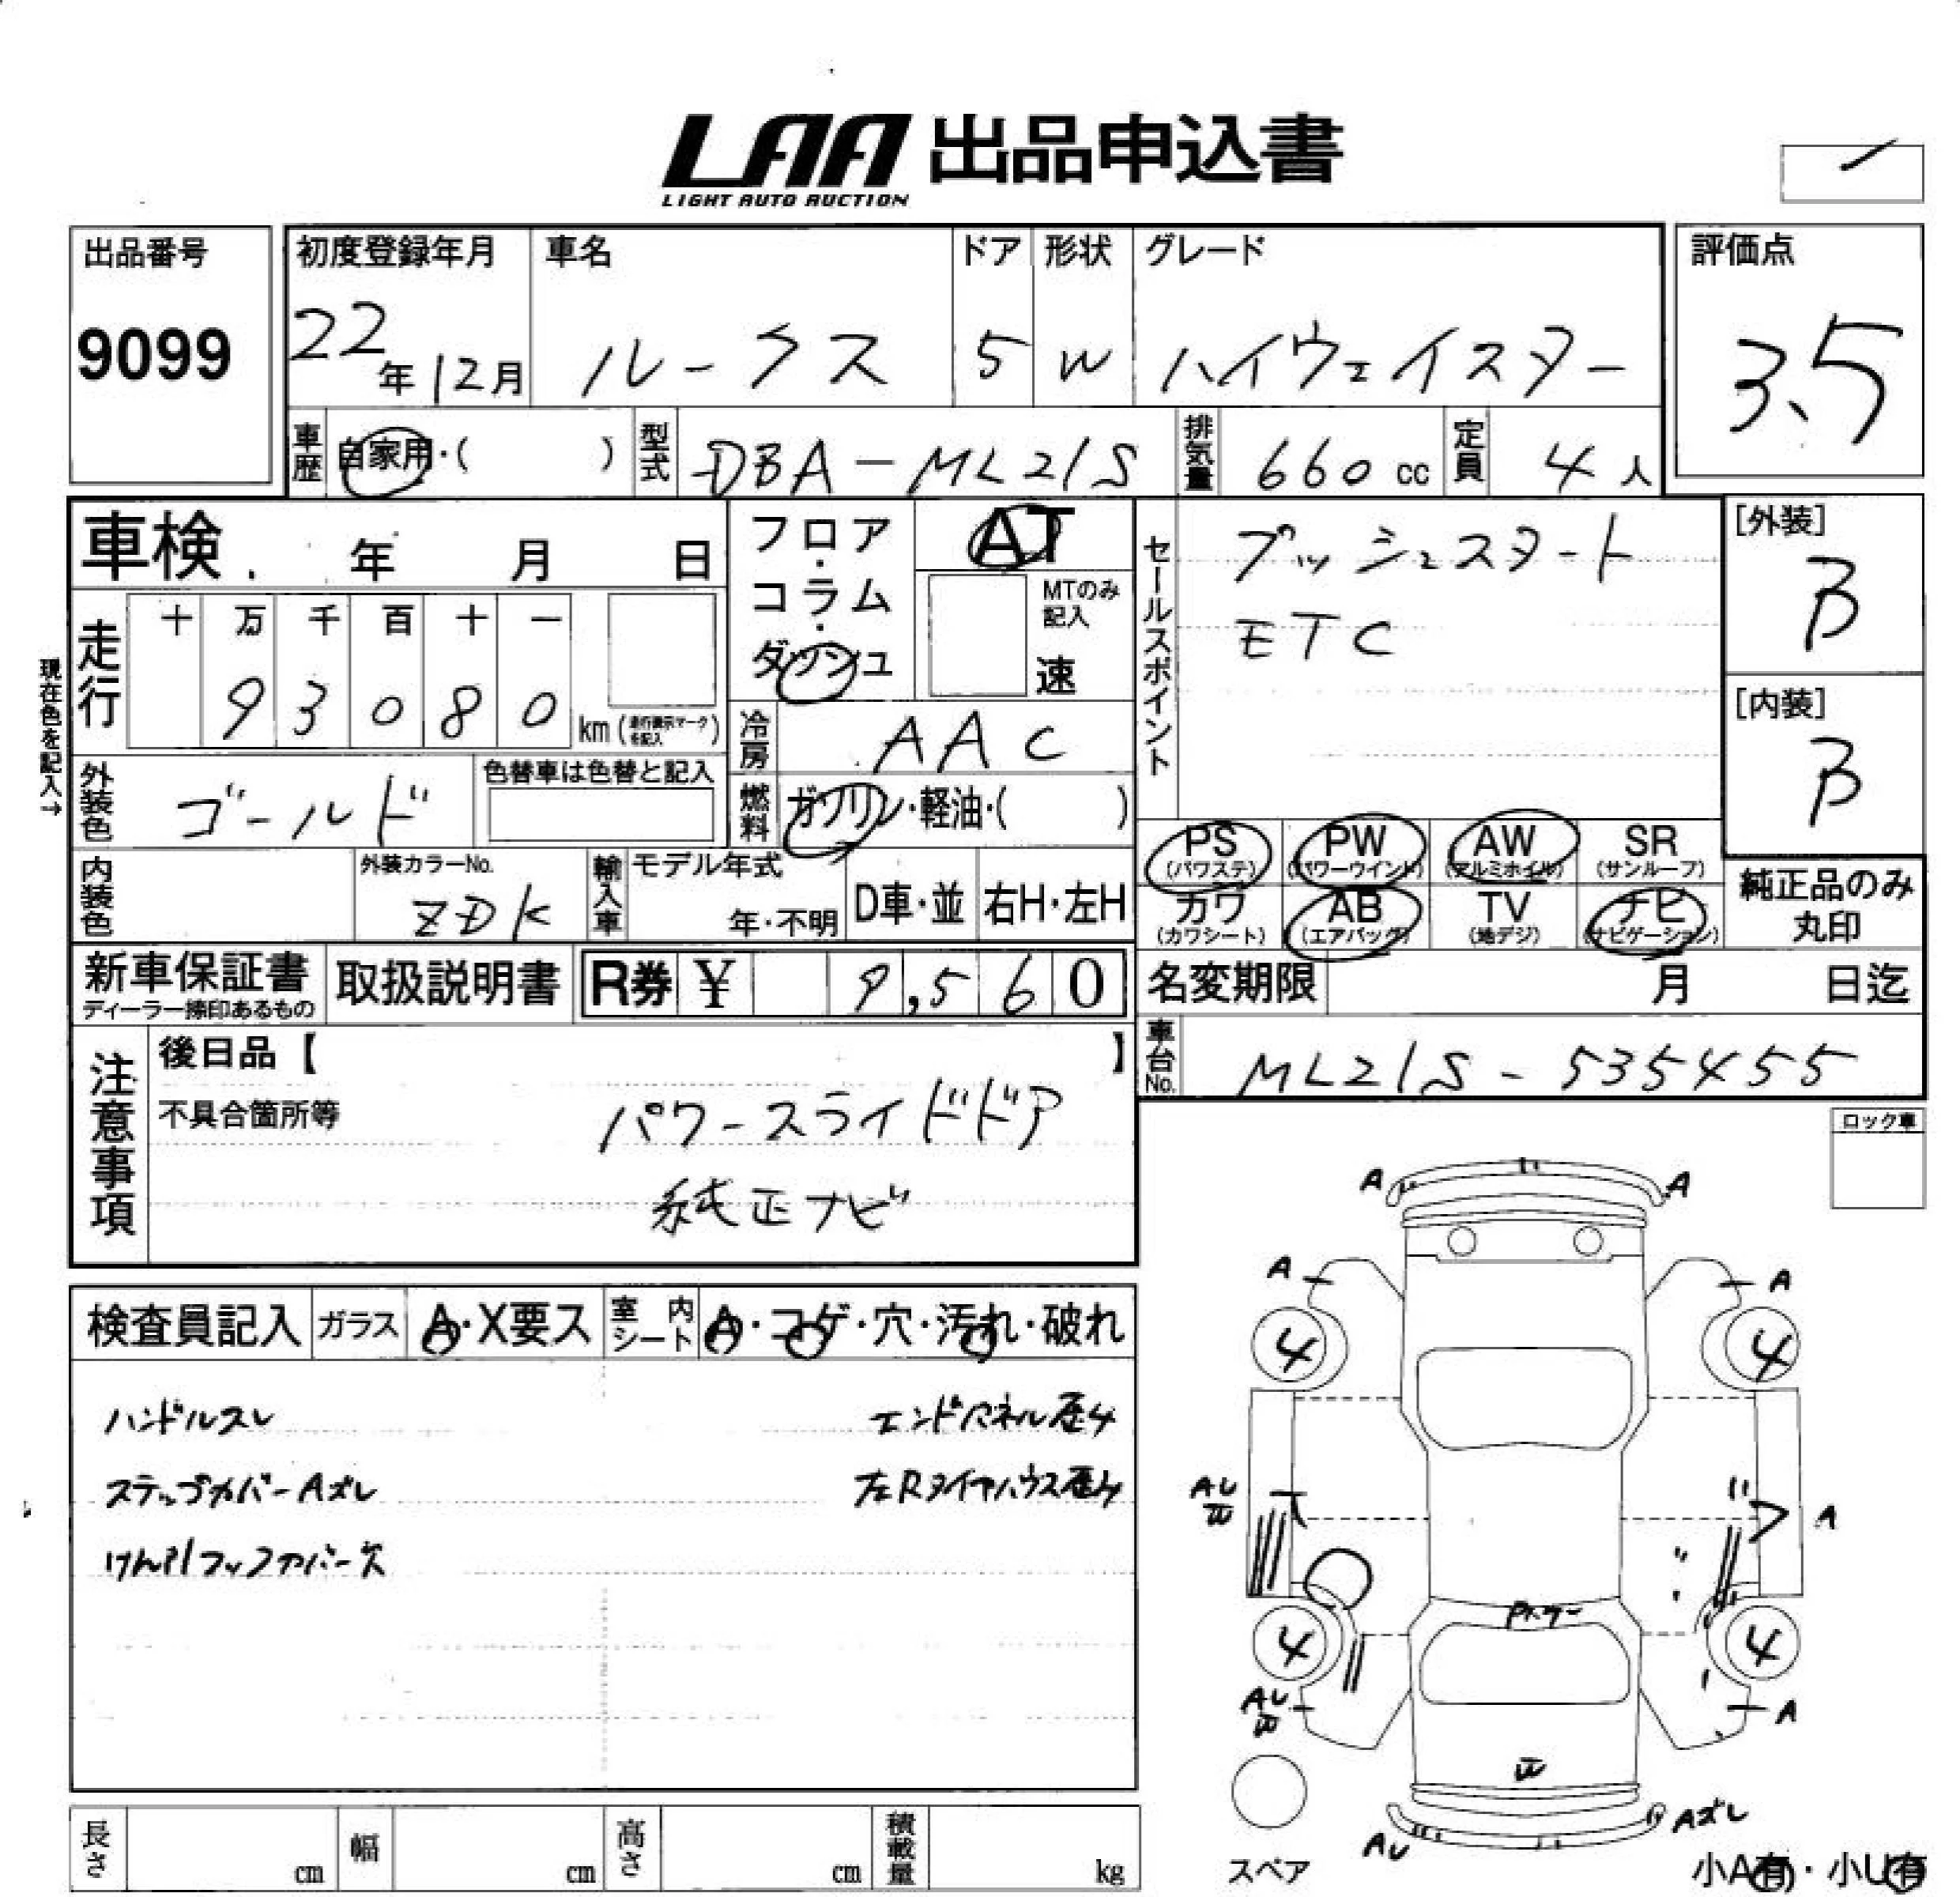 LAA 出品申込書
LIGHT AUTO AUCTION
出品番号
9099
初度登録年月
22年12月
車名
ルークス
ドア
5
形状
W
グレード
ハイウェイスター
評価点
3.5
車歴
自家用・( )
型式
DBA-ML21S
排気量
660 cc
定員
4 人
車検 年 月 日
フロア・コラム・ダッシュ
AT
MTのみ記入
速
セールスポイント
プッシュスタート
ETC
[外装]
B
[内装]
B
現在色を記入→
走行
十 万 千 百 十 一
9 3 0 8 0 km (走行表示マークを記入)
冷房
AAC
外装色
ゴールド
色替車は色替と記入
燃料
ガソリン・軽油・( )
PS (パワステ)
PW (パワーウインド)
AW (アルミホイル)
SR (サンルーフ)
カワ (カワシート)
AB (エアバッグ)
TV (地デジ)
ナビ (ナビゲーション)
純正品のみ丸印
内装色
外装カラーNo.
ZDK
輸入車
モデル年式
年・不明
D車・並
右H・左H
新車保証書
ディーラー捺印あるもの
取扱説明書
R券 ¥ 9,560
名変期限 月 日迄
車台No.
ML21S-535455
注意事項
後日品【 】
不具合箇所等
パワースライドドア
純正ナビ
ロック車
検査員記入
ガラス
A・X要ス
室内シート
A・コゲ・穴・汚れ・破れ
ハンドルスレ
エンドパネル歪み
ステップカバーAズレ
左Rタイヤハウス歪み
けん引フックカバー欠
A A
A A
4 4
AU
W
A
4 4
AU
W
A
W
AU
Aズレ
スペア
小A有・小U有
長さ cm
幅 cm
高さ cm
積載量 kg